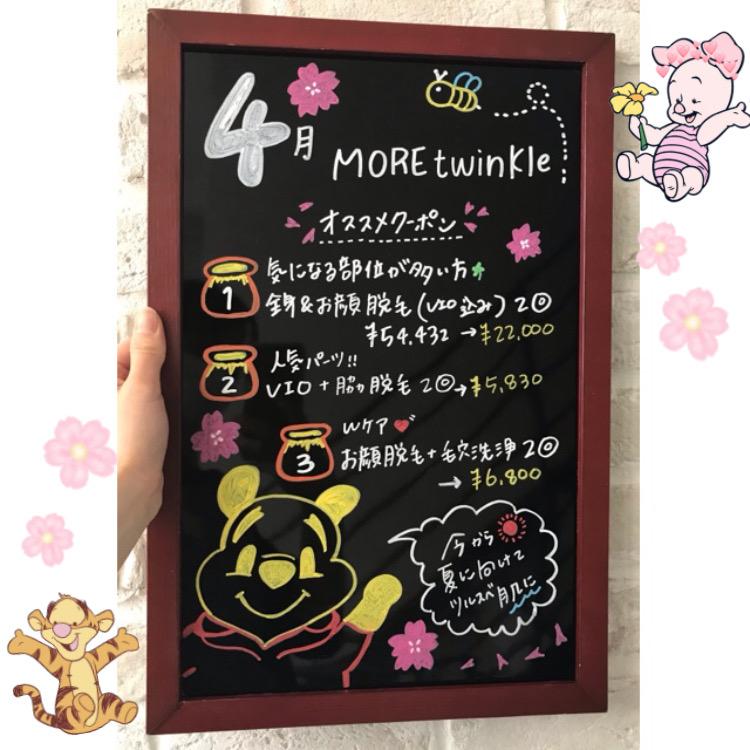 4月
MOREtwinkle
オススメクーポン
1
気になる部位が多い方
全身&お顔脱毛(VIO込み)2◎
¥54,432→¥22,000
2
人気パーツ!!
VIO+脇脱毛2◎→¥5,830
3
Wケア
お顔脱毛+毛穴洗浄2◎
→¥6,800
今から
夏に向けて
ツルスベ肌に